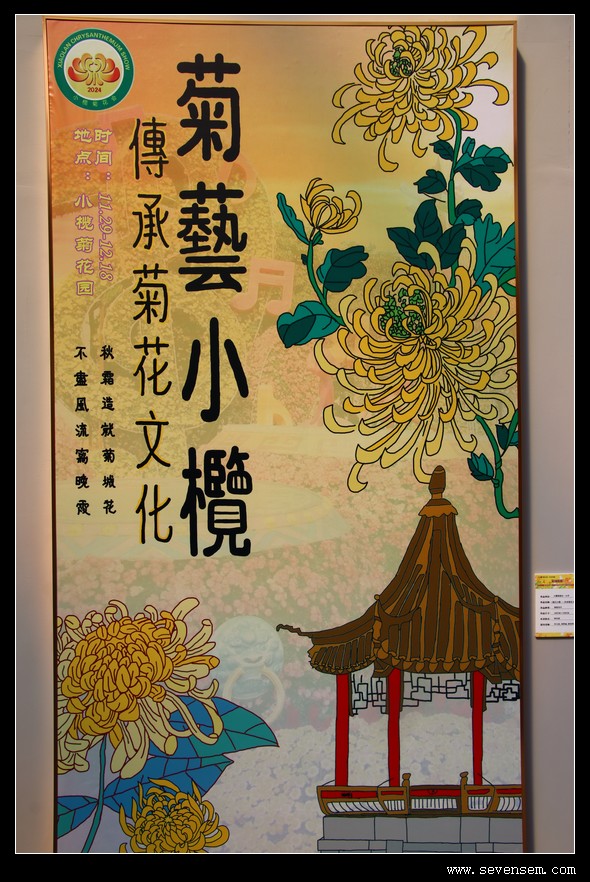 XIAOLAN CHRYSANTHEMUM SHOW
2024
小榄菊花会
菊藝小欖
傳承菊花文化
时间：11.29-12.18
地点：小榄菊花园
秋霜造就菊城花
不盡風流寫晚霞
www.sevensem.com